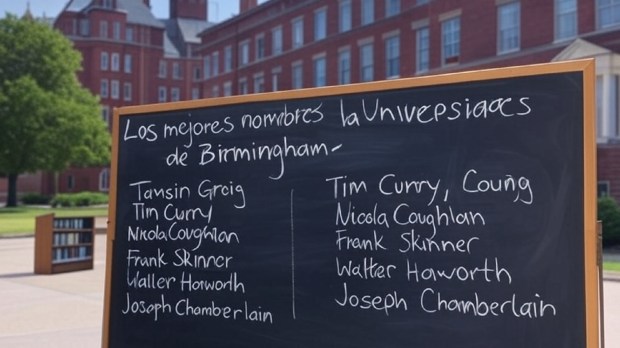 Los mejores nombres la Universidades
de Birmingham-
Tamsin Greig
Tim Curry
Nicola Coughlan
Frank Skinner
Waller Haworth
Joseph Chamberlain
Tim Curry, Coung
Nicola Coughlan
Frank Skinner
Walter Haworth
Joseph Chamberlain